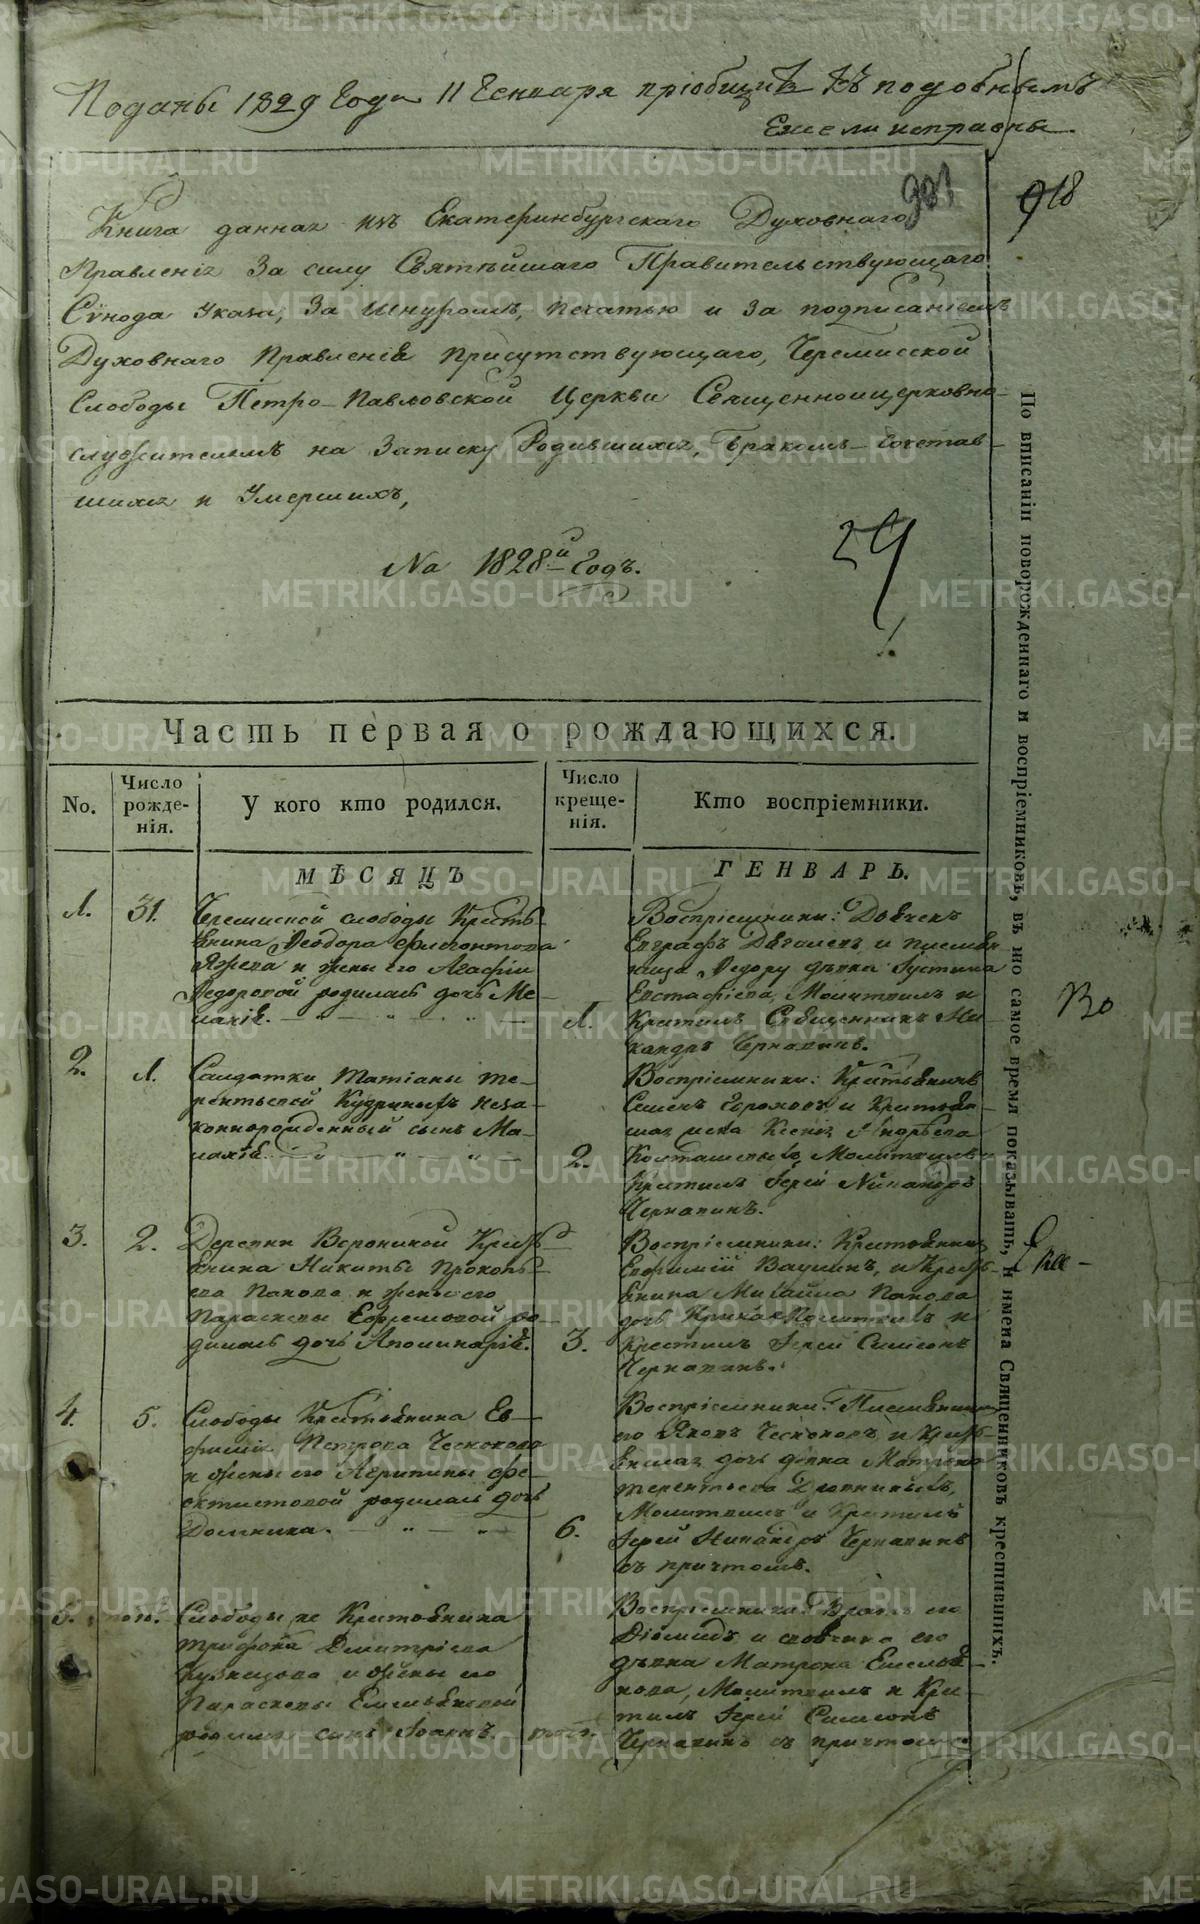 Поданы 1829 Года 11 Генваря пріобщить къ подобнымъ
Ежели исправны.
901
918
Книга данная изъ Екатеринбургскаго Духовнаго
Правленія За силу Святѣйшаго Правительствующаго
Сѵнода Указа, За шнуромъ, печатью и За подписаніемъ
Духовнаго Правленія присутствующаго, Черемисской
Слободы Петро-Павловской Церкви Священноицерковно-
служителямъ на Записку Родившихся, Бракомъ сочетав-
шихся и Умершихъ,
На 1828й Годъ.
29
Часть первая о рождающихся.
No.
Число рожде-нія.
У кого кто родился.
Число креще-нія.
Кто воспріемники.
МѢСЯЦЪ
ГЕНВАРЬ.
1.
31.
Черемиской слободы Кресть-
янина Ѳеодора
и жены его Агафіи
Ѳедоровой родилась дочь Ме-
ланія.
1.
Воспріемники:
Евграфъ и
Ѳедору дѣвка Іустина
Евстафіева, Молитвилъ и
Крестилъ Священникъ Ни-
кандръ Чернавинъ.
2.
1.
Салдатки Татіаны Те-
рентьевой Кудриныхъ неза-
коннорожденный сынъ Ма-
лахій.
2.
Воспріемники: Крестьянинъ
Семенъ и Крестьян-
Ксенія
Молитвилъ и
Крестилъ Іерей Никандръ
Чернавинъ.
3.
2.
Деревни Ворониной Кресть-
янина Никиты Прокопь-
ева Панова и жены его
Параскевы Ефремовой ро-
дилась дочь Аполинарія.
3.
Воспріемники: Крестьянинъ
Евфимій Ваулинъ, и Кресть-
янина Михайла Панова
дочь Молитвилъ и
Крестилъ Іерей Симеонъ
Чернавинъ.
4.
5.
Слободы Крестьянина Ев-
фимія Петрова Чеснокова
и жены его Агрипины Фе-
октистовой родилась дочь
Домника.
6.
Воспріемники:
его Яковъ Чесноковъ, и Кресть-
янская дочь дѣвка Матрена
Терентьева
Молитвилъ и Крестилъ
Іерей Никандръ Чернавинъ
съ причтомъ.
5.
тогожъ.
Слободы же Крестьянина
Трифона Дмитріева
Кузнецова и жены его
Параскевы Емельяновой
родился сынъ Іоаннъ.
тогожъ.
Воспріемники: Братъ его
Діомидъ и своячина его
дѣвка Матрона Емелья-
нова, Молитвилъ и Кре-
стилъ Іерей Симеонъ
Чернавинъ съ причтомъ
По вписаніи новорожденнаго и воспріемниковъ, въ то самое время показывать, и имена Священниковъ крестившихъ.
Во
METRIKI.GASO-URAL.RU